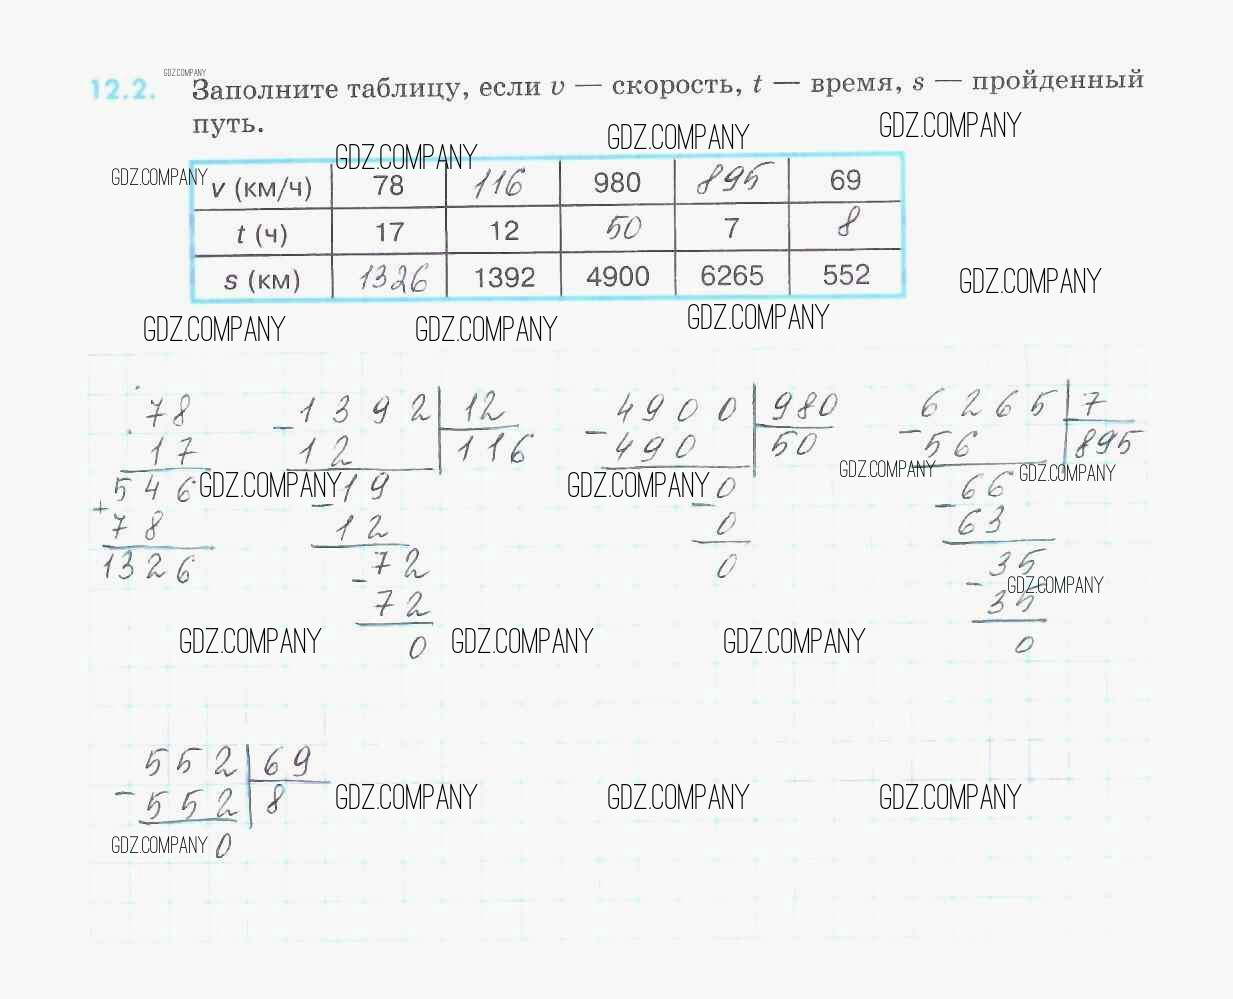 GDZ.COMPANY
12.2. Заполните таблицу, если v — скорость, t — время, s — пройденный
путь.
GDZ.COMPANY GDZ.COMPANY GDZ.COMPANY GDZ.COMPANY
v (км/ч) 78 116 980 895 69
t (ч) 17 12 50 7 8
s (км) 1326 1392 4900 6265 552
GDZ.COMPANY
GDZ.COMPANY GDZ.COMPANY GDZ.COMPANY
78 − 1392 12 − 4900 980 − 6265 7
17 12 116 490 50 56 895
546 GDZ.COMPANY 19 GDZ.COMPANY 0 GDZ.COMPANY 66 GDZ.COMPANY
+ 78 − 12 − 0 − 63
1326 72 0 35
− 72 − 35 GDZ.COMPANY
0 0
GDZ.COMPANY GDZ.COMPANY GDZ.COMPANY
− 552 69
552 8 GDZ.COMPANY GDZ.COMPANY GDZ.COMPANY
GDZ.COMPANY 0